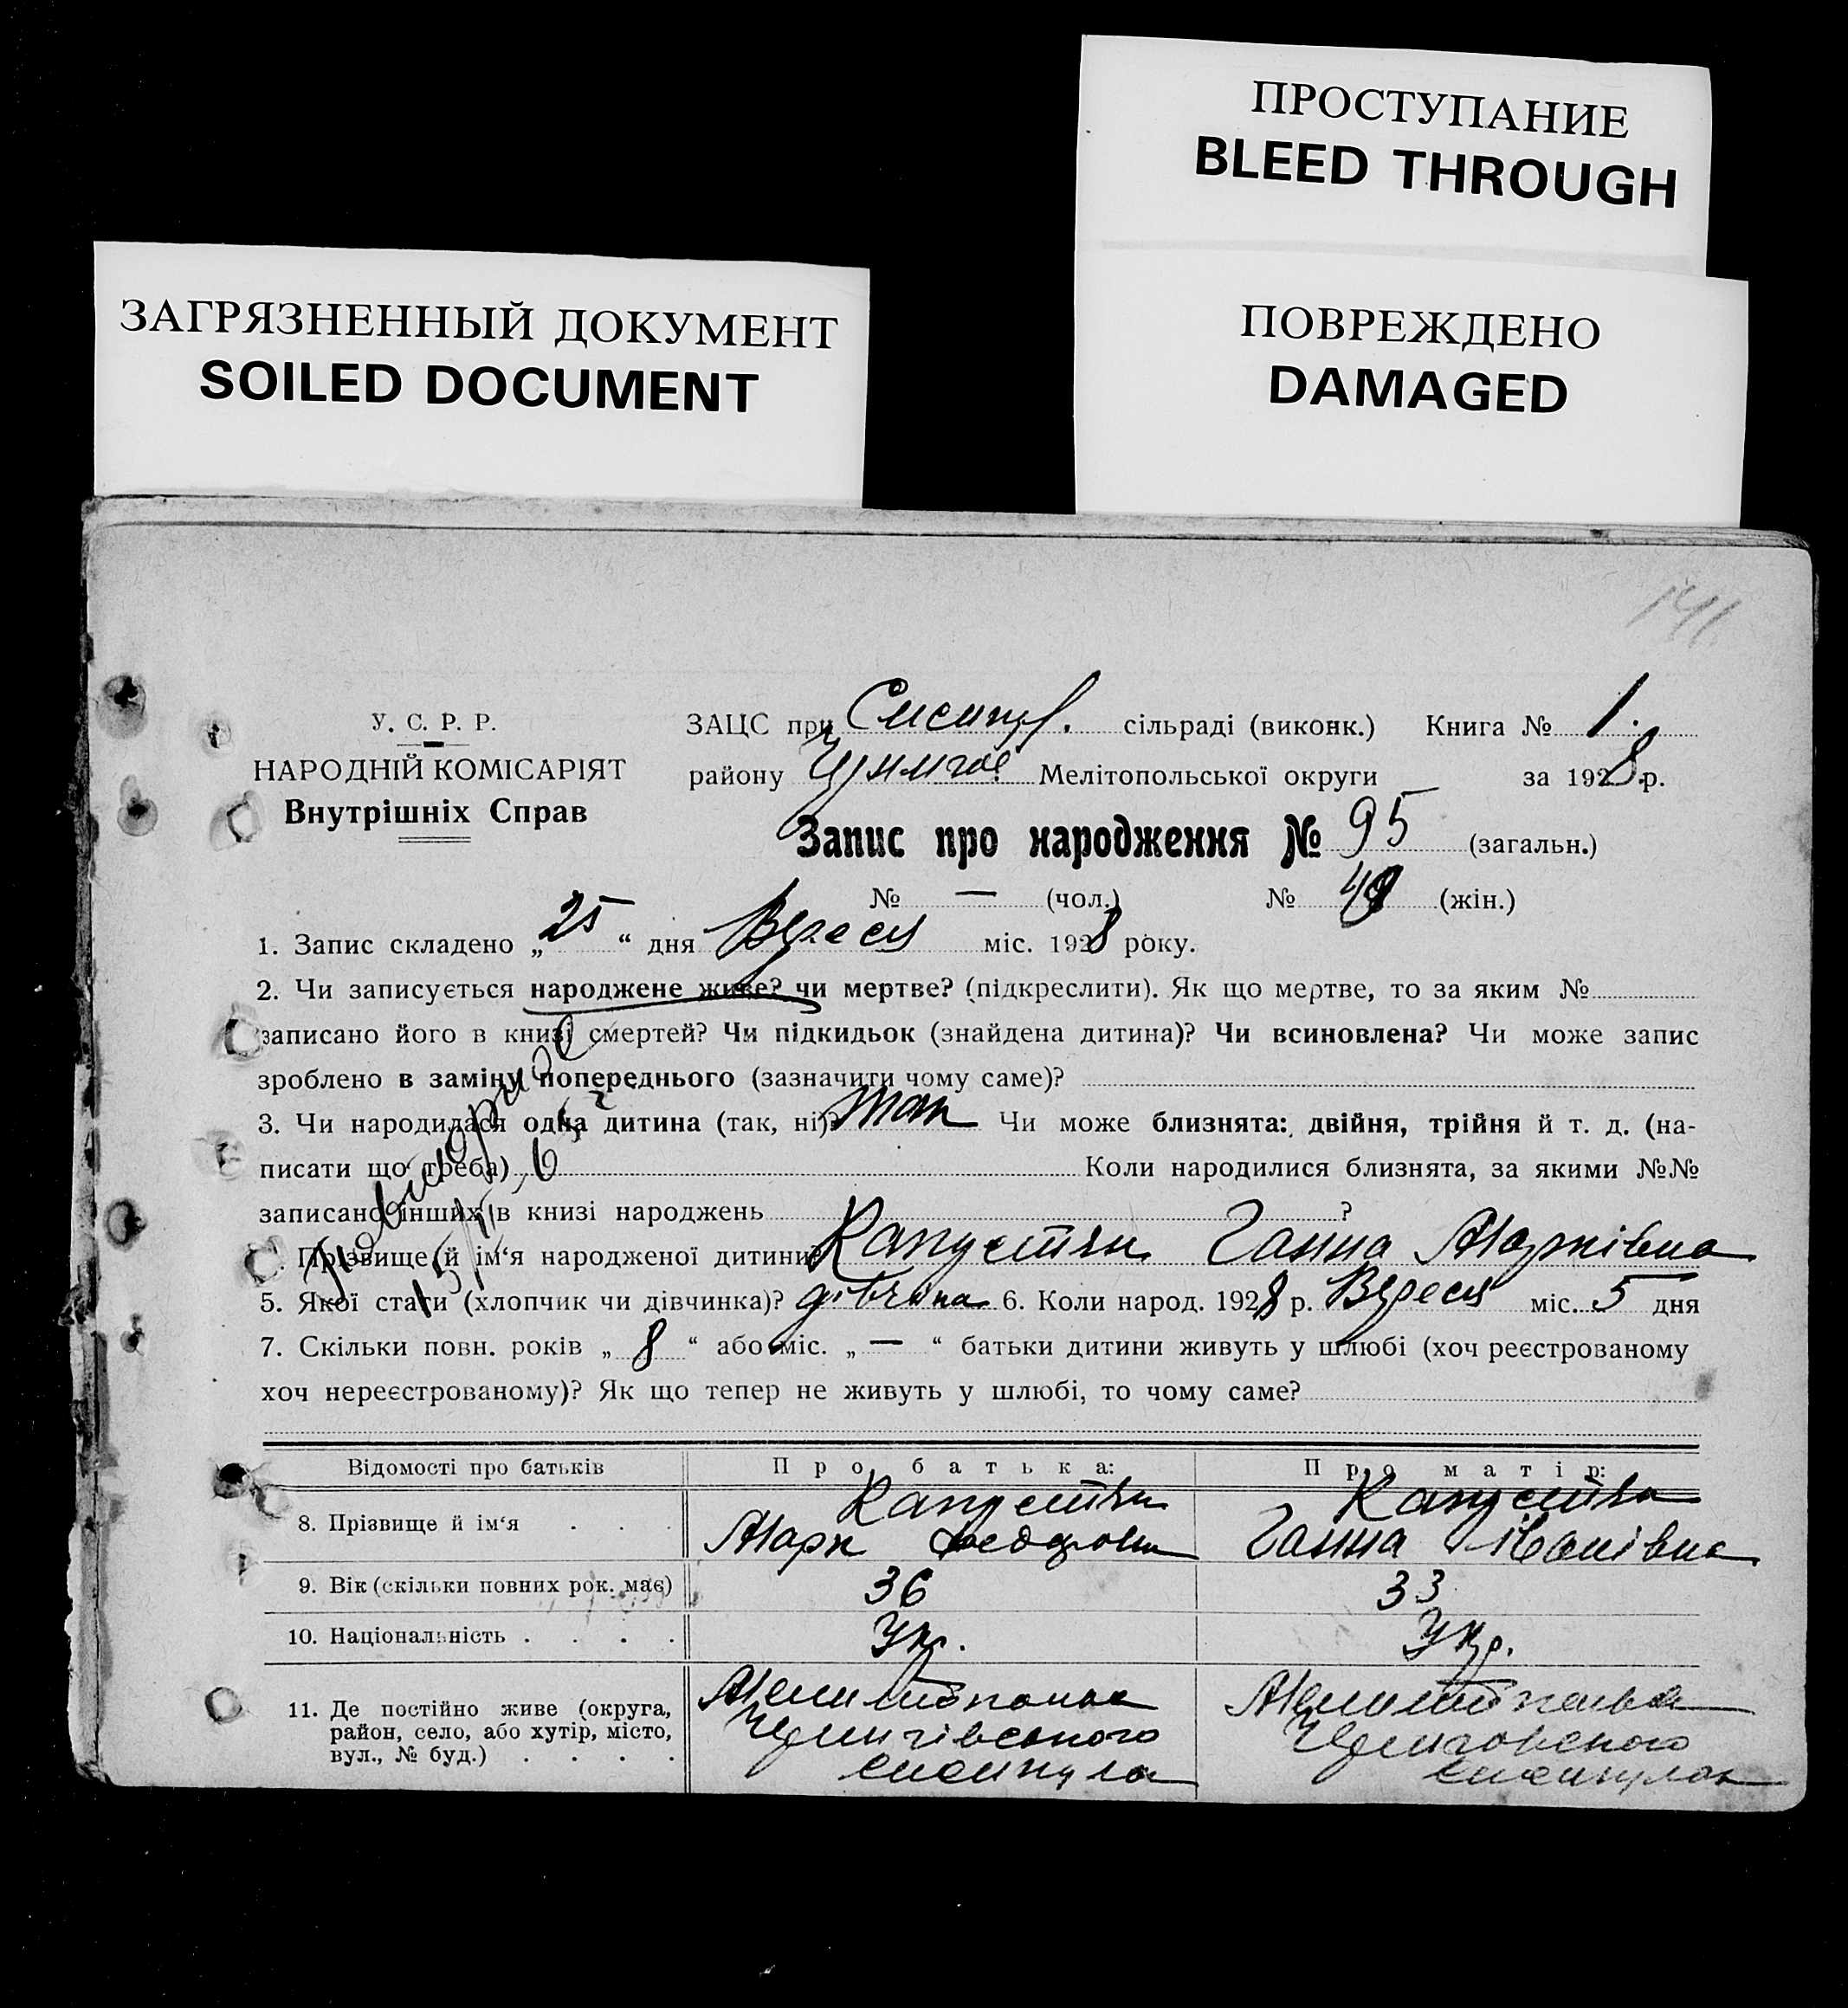 ПРОСТУПАНИЕ
BLEED THROUGH
ЗАГРЯЗНЕННЫЙ ДОКУМЕНТ
SOILED DOCUMENT
ПОВРЕЖДЕНО
DAMAGED
141
У. С. Р. Р.
НАРОДНІЙ КОМІСАРІЯТ
Внутрішніх Справ
ЗАЦС при сільраді (виконк.) Книга № 1.
району Мелітопольської округи за 1928 р.
Запис про народження № 95 (загальн.)
№ — (чол.) № (жін.)
1. Запис складено „25“ дня Вересня міс. 1928 року.
2. Чи записується народжене живе? чи мертве? (підкреслити). Як що мертве, то за яким №
записано його в книзі смертей? Чи підкидьок (знайдена дитина)? Чи всиновлена? Чи може запис
зроблено в заміну попереднього (зазначити чому саме)?
3. Чи народилася одна дитина (так, ні)? так Чи може близнята: двійня, трійня й т. д. (на-
писати що треба) Коли народилися близнята, за якими №№
записано інших в книзі народжень ?
Прізвище й ім‘я народженої дитини Капустян Ганна Марківна
5. Якої стати (хлопчик чи дівчинка)? дівчина 6. Коли народ. 1928 р. Вересня міс. 5 дня
7. Скільки повн. років „8“ або міс. „—“ батьки дитини живуть у шлюбі (хоч реєстрованому
хоч нереєстрованому)? Як що тепер не живуть у шлюбі, то чому саме?
Відомості про батьків Про батька: Про матір:
8. Прізвище й ім‘я Капустян Марк Капустян Ганна Іванівна
9. Вік (скільки повних рок. має) 36 33
10. Національність Укр. Укр.
11. Де постійно живе (округа,
район, село, або хутір, місто,
вул., № буд.)
Чернігівського